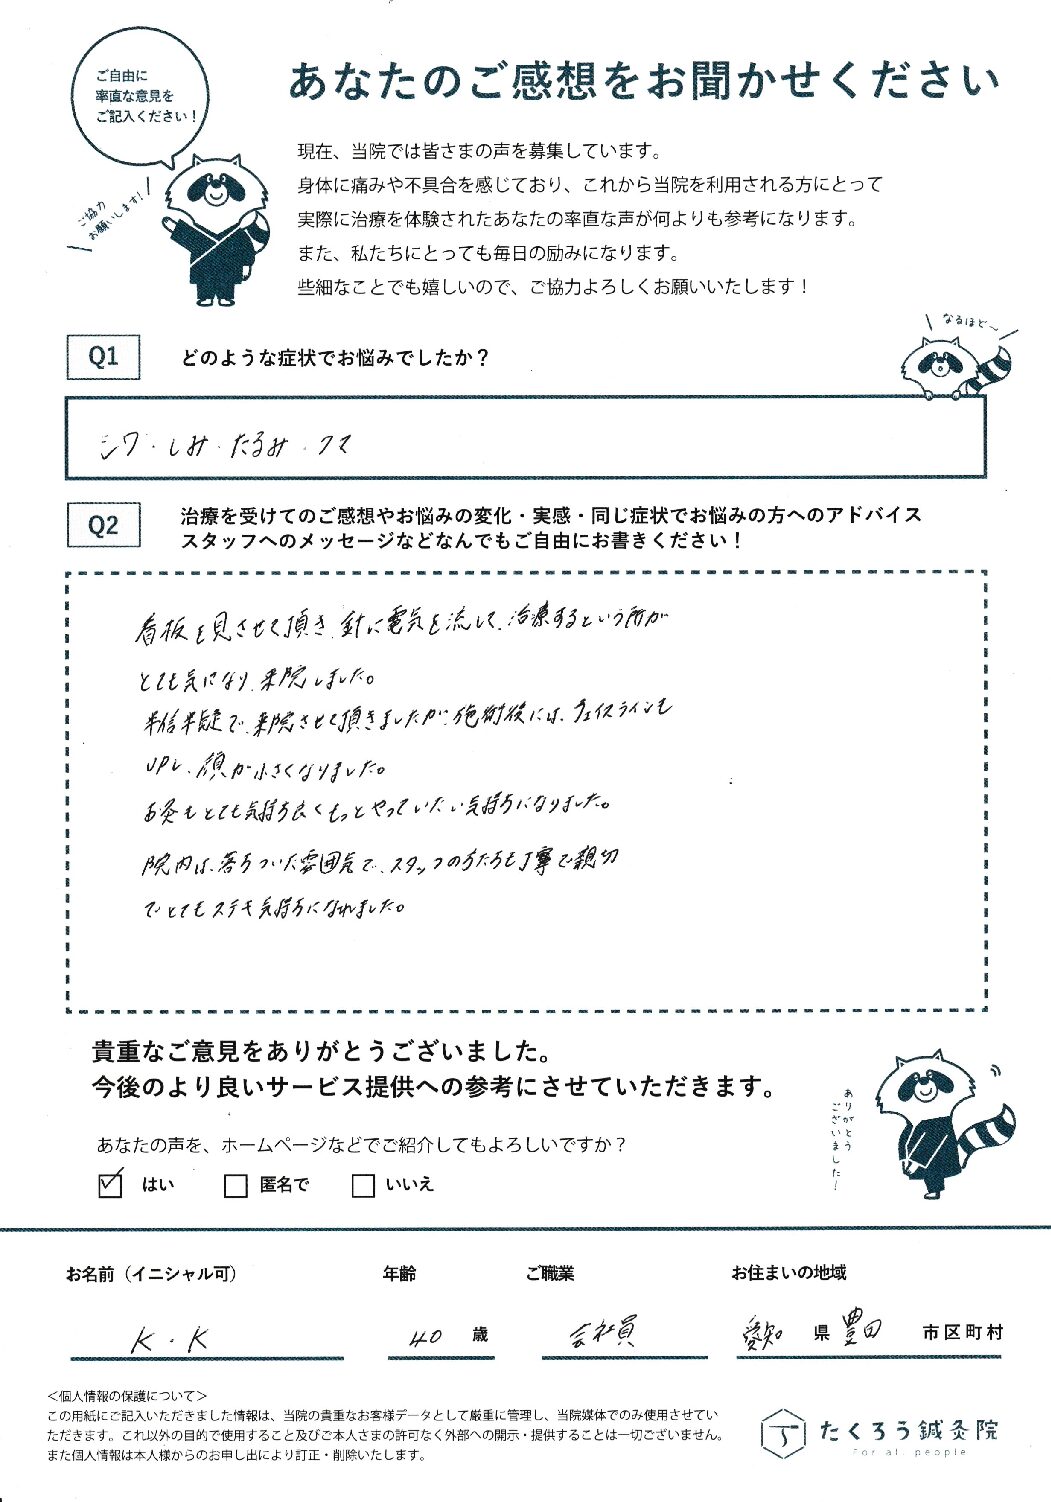 ご自由に
率直な意見を
ご記入ください！
ご協力
お願いします！
あなたのご感想をお聞かせください
現在、当院では皆さまの声を募集しています。
身体に痛みや不具合を感じており、これから当院を利用される方にとって
実際に治療を体験されたあなたの率直な声が何よりも参考になります。
また、私たちにとっても毎日の励みになります。
些細なことでも嬉しいので、ご協力よろしくお願いいたします！
なるほど〜
Q1 どのような症状でお悩みでしたか？
シワ・しみ・たるみ・クマ
Q2 治療を受けてのご感想やお悩みの変化・実感・同じ症状でお悩みの方へのアドバイス
スタッフへのメッセージなどなんでもご自由にお書きください！
看板を見させて頂き、針に電気を流して、治療するという所が
とても気になり、来院しました。
半信半疑で、来院させて頂きましたが、施術後には、フェイスラインも
UPし、顔が小さくなりました。
お灸もとても気持ち良くもっとやっていたい気持ちになりました。
院内は、落ちついた雰囲気で、スタッフの方たちも丁寧で親切
でとてもステキ気持ちになれました。
貴重なご意見をありがとうございました。
今後のより良いサービス提供への参考にさせていただきます。
ありがとう
ございました！
あなたの声を、ホームページなどでご紹介してもよろしいですか？
はい 匿名で いいえ
お名前（イニシャル可） 年齢 ご職業 お住まいの地域
K・K 40 歳 会社員 愛知 県 豊田 市区町村
＜個人情報の保護について＞
この用紙にご記入いただきました情報は、当院の貴重なお客様データとして厳重に管理し、当院媒体でのみ使用させてい
ただきます。これ以外の目的で使用すること及びご本人さまの許可なく外部への開示・提供することは一切ございません。
また個人情報は本人様からのお申し出により訂正・削除いたします。
たくろう鍼灸院
For all people